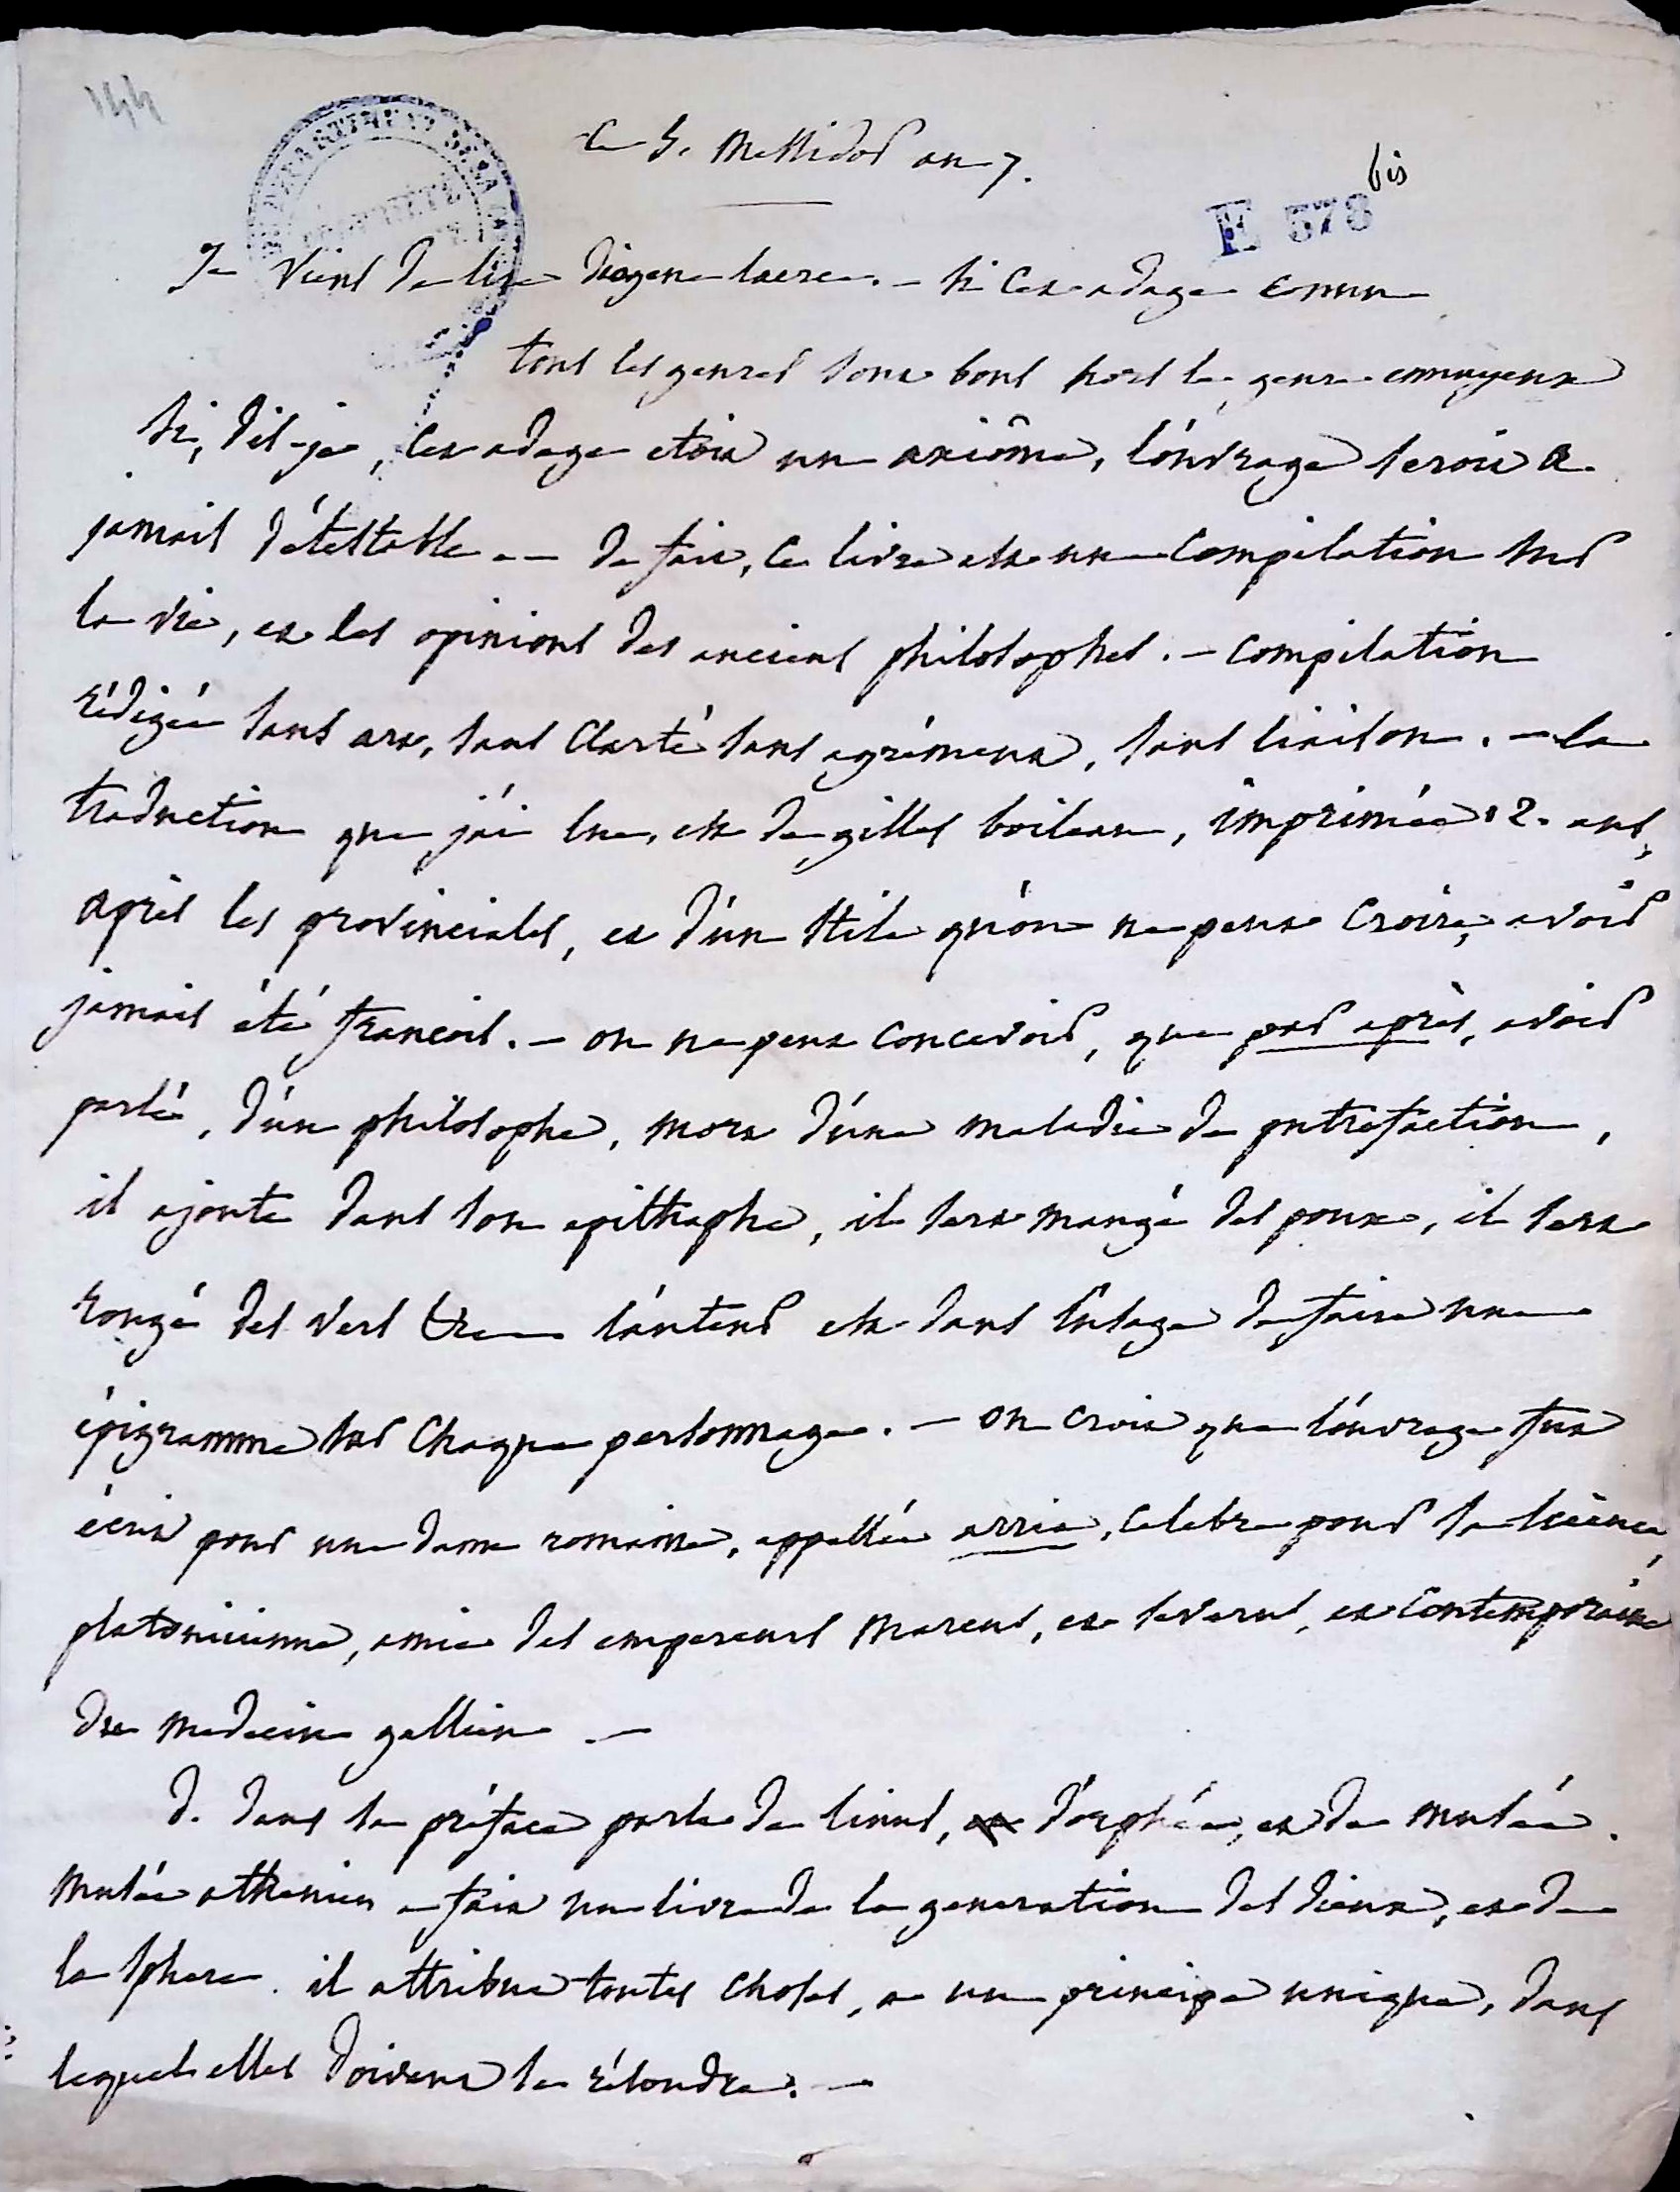 144
Ce 5. Messidor an 7.
bis
E 578
Je viens de lire diogene laerce. - si cet adage connu
tous les genres sont bons hors le genre ennuyeux
si, dis-je, cet adage etoit un axiôme, l'ouvrage seroit a
jamais détestable. - de fait, ce livre est une compilation sur
la vie, et les opinions des anciens philosophes. - compilation
rédigée sans art, sans clarté sans agrément, sans liaison. - la
traduction que j'ai lue, est de gilles boileau, imprimée 12. ans,
après les provinciales, et d'un stile qu'on ne peut croire, avoir
jamais été françois. - on ne peut concevoir, que par après, avoir
parlé, d'un philosophe, mort d'une maladie de putrefaction,
il ajoute dans son epitaphe, il sert mangé des poux, il sert
rongé des vers &c l'auteur est dans l'usage de faire une
épigramme sur chaque personnage. - on croit que l'ouvrage fut
écrit pour une dame romaine, appellée arria, celebre pour sa science,
platonicienne, amie des empereurs marcus, et severus, et contemporaine
du medecin gallien. -
d. dans sa préface parle de linus, d'orphée, et de musée.
musée athenien a fait un livre de la generation des dieux, et de
la sphere. il attribue toutes choses, a un principe unique, dans
lequel elles doivent se résoudre. -